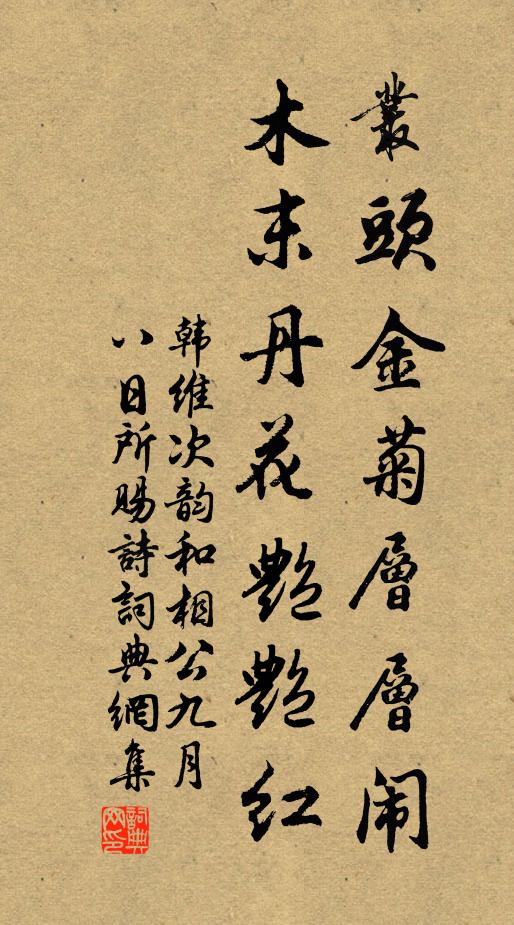 叢頭金菊層層闹
木末丹花艷艷红
韩维次韵和相公九月
八日所賜詩詞典網集
詞典
网印